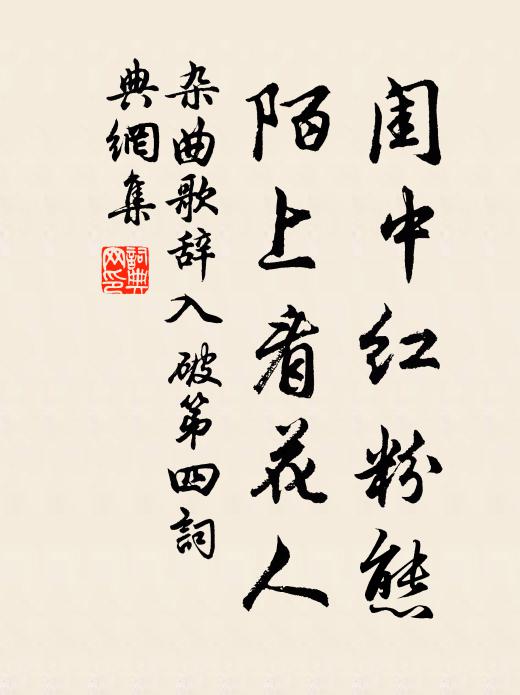 闺中红粉態
陌上看花人
杂曲歌辞入破第四詞
典網集
詞典网印